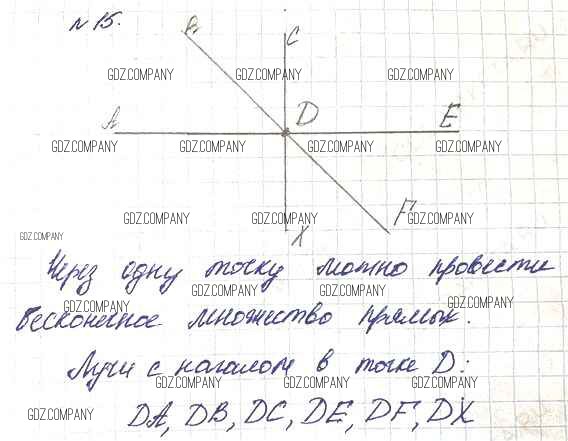 № 15.
B
C
GDZ.COMPANY GDZ.COMPANY GDZ.COMPANY
A D E
GDZ.COMPANY GDZ.COMPANY GDZ.COMPANY GDZ.COMPANY
F
GDZ.COMPANY GDZ.COMPANY GDZ.COMPANY
X
GDZ.COMPANY
Через одну точку можно провести
GDZ.COMPANY GDZ.COMPANY
GDZ.COMPANY GDZ.COMPANY
бесконечное множество прямых.
Лучи с началом в точке D:
GDZ.COMPANY GDZ.COMPANY GDZ.COMPANY
GDZ.COMPANY
DA, DB, DC, DE, DF, DX